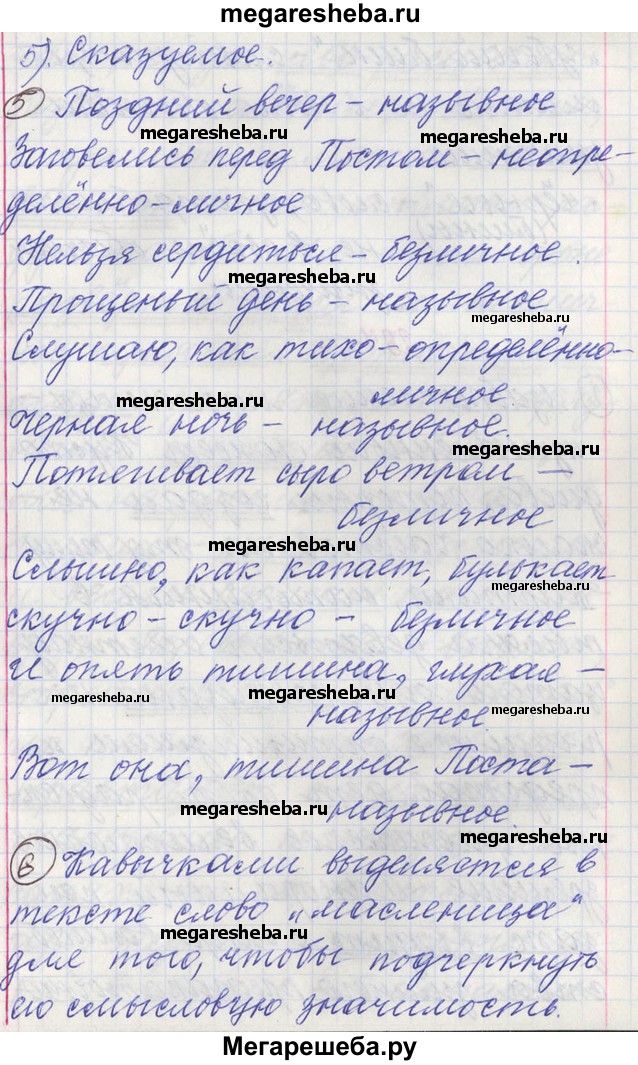 megaresheba.ru
5). Сказуемое.
5 Поздний вечер – назывное
megaresheba.ru
megaresheba.ru
Заговелись перед Постом – неопре-
делённо-личное
Нельзя сердиться – безличное.
megaresheba.ru
Прощеный день – назывное
megaresheba.ru
Слушаю, как тихо – определённо-
личное.
megaresheba.ru
Черная ночь – назывное.
megaresheba.ru
Потягивает сыро ветром –
безличное
megaresheba.ru
Слышно, как капает, булькает
megaresheba.ru
скучно-скучно – безличное
И опять тишина, глухая –
megaresheba.ru
megaresheba.ru
megaresheba.ru
назывное.
Вот она, тишина Поста –
megaresheba.ru
назывное.
megaresheba.ru
6 Кавычками выделяется в
тексте слово „масленица“
megaresheba.ru
для того, чтобы подчеркнуть
его смысловую значимость.
Мегарешеба.ру